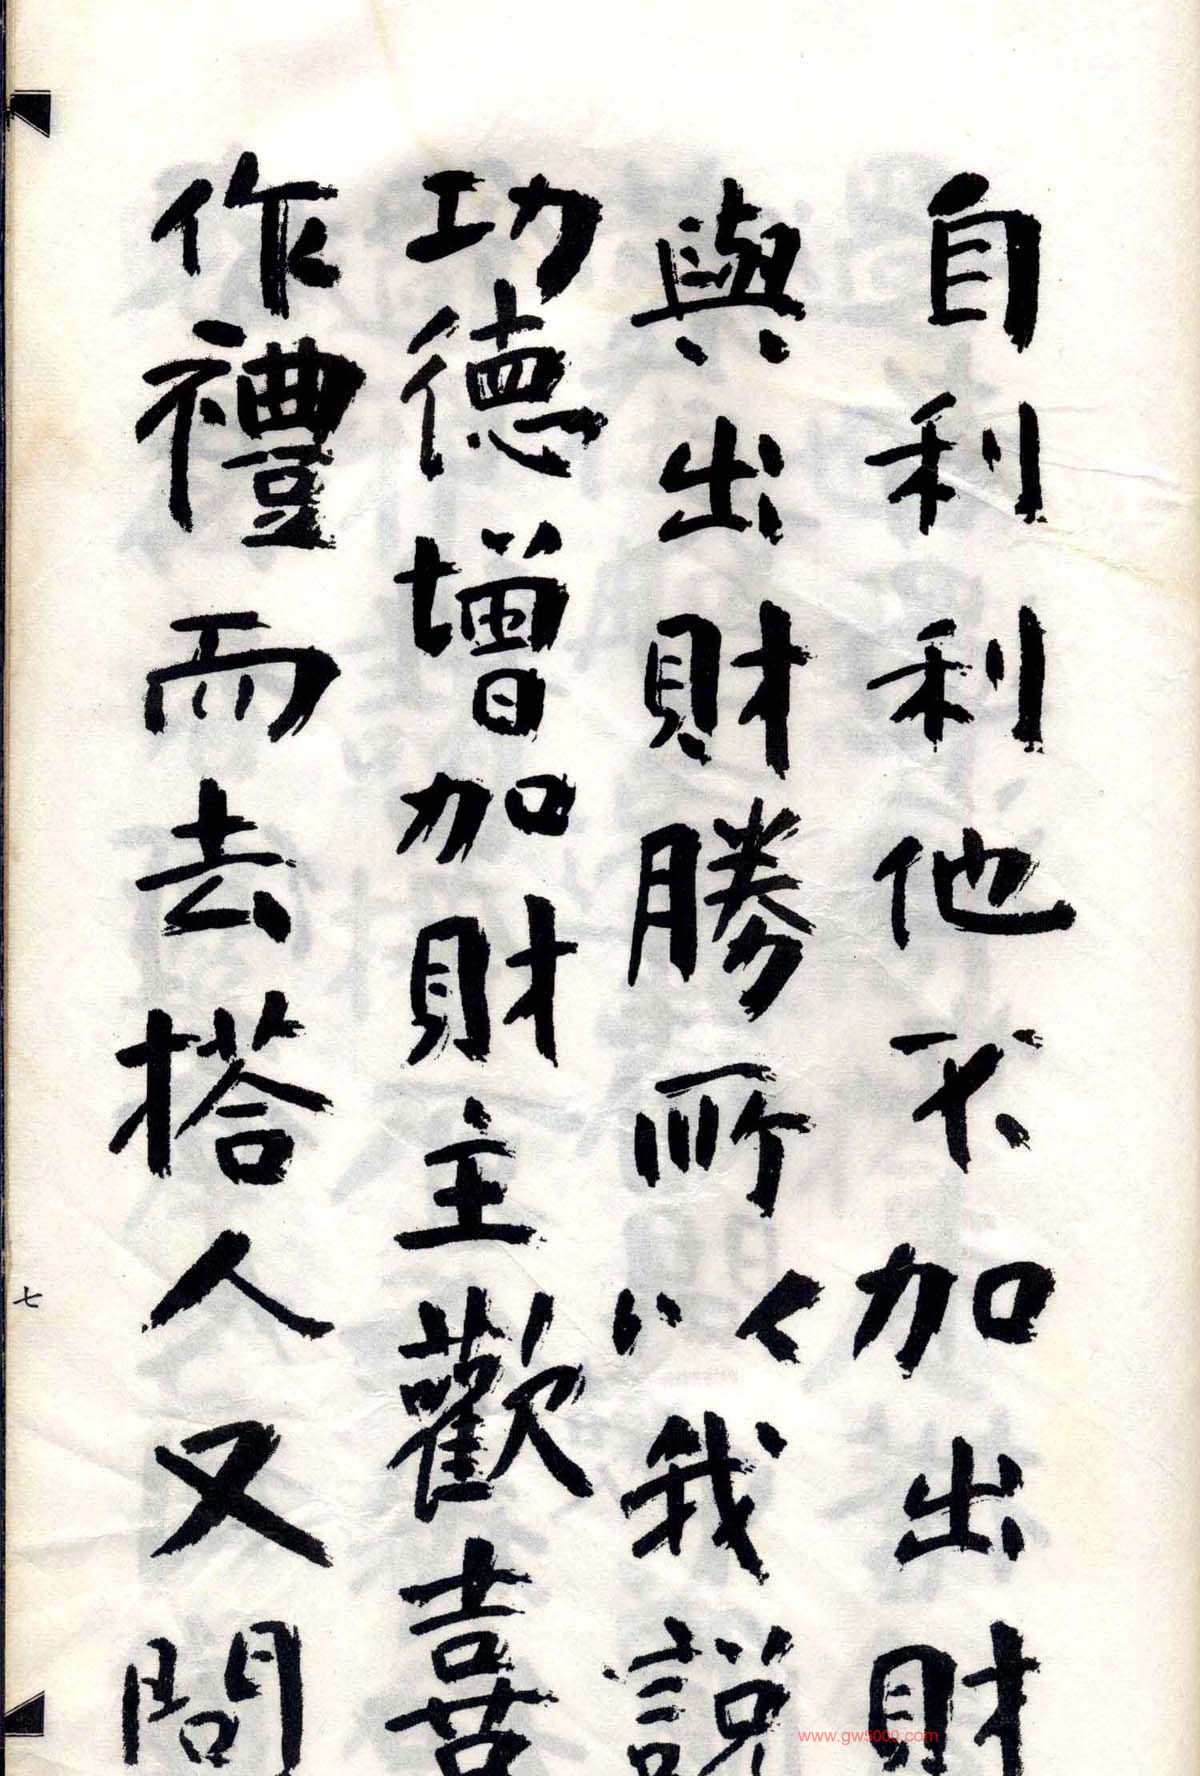 自利利他不加出財
與出財勝所以我説
功德增加財主歡喜
作禮而去搭人又問
七
www.gw5000.com